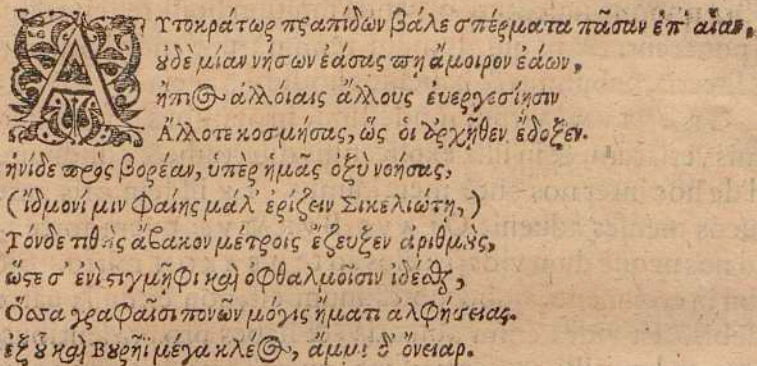 Αὐτοκράτωρ πραπίδων βάλε σπέρματα πᾶσαν ἐπ' αἶαν,
οὐδὲ μίαν νήσων ἐάσας πη ἄμοιρον ἑάων,
ἤπιος ἀλλοίαις ἄλλους ἐυεργεσίησιν
Ἄλλοτε κοσμήσας, ὥς οἱ ἀρχῆθεν ἔδοξεν.
ἠνίδε πρὸς βορέαν, ὑπὲρ ἡμᾶς ὀξὺ νοήσας,
(ἴδμονί μιν φαίης μάλ' ἐρίζειν Σικελιώτῃ,)
Τόνδε τιθεὶς ἄβακον μέτροις ἔζευξεν ἀριθμοὺς,
ὥστε σ' ἐνὶ στιγμῆφι καὶ ὀφθαλμοῖσιν ἰδέσθαι,
Ὅσσα γραφαῖσι πονῶν μόγις ἤματι ἀλφήσειας.
ἐξ οὗ καὶ Βυρῆϊ μέγα κλέος, ἄμμι δ' ὄνειαρ.